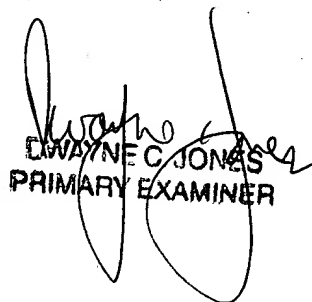 Dwayne C Jones
DWAYNE C. JONES
PRIMARY EXAMINER